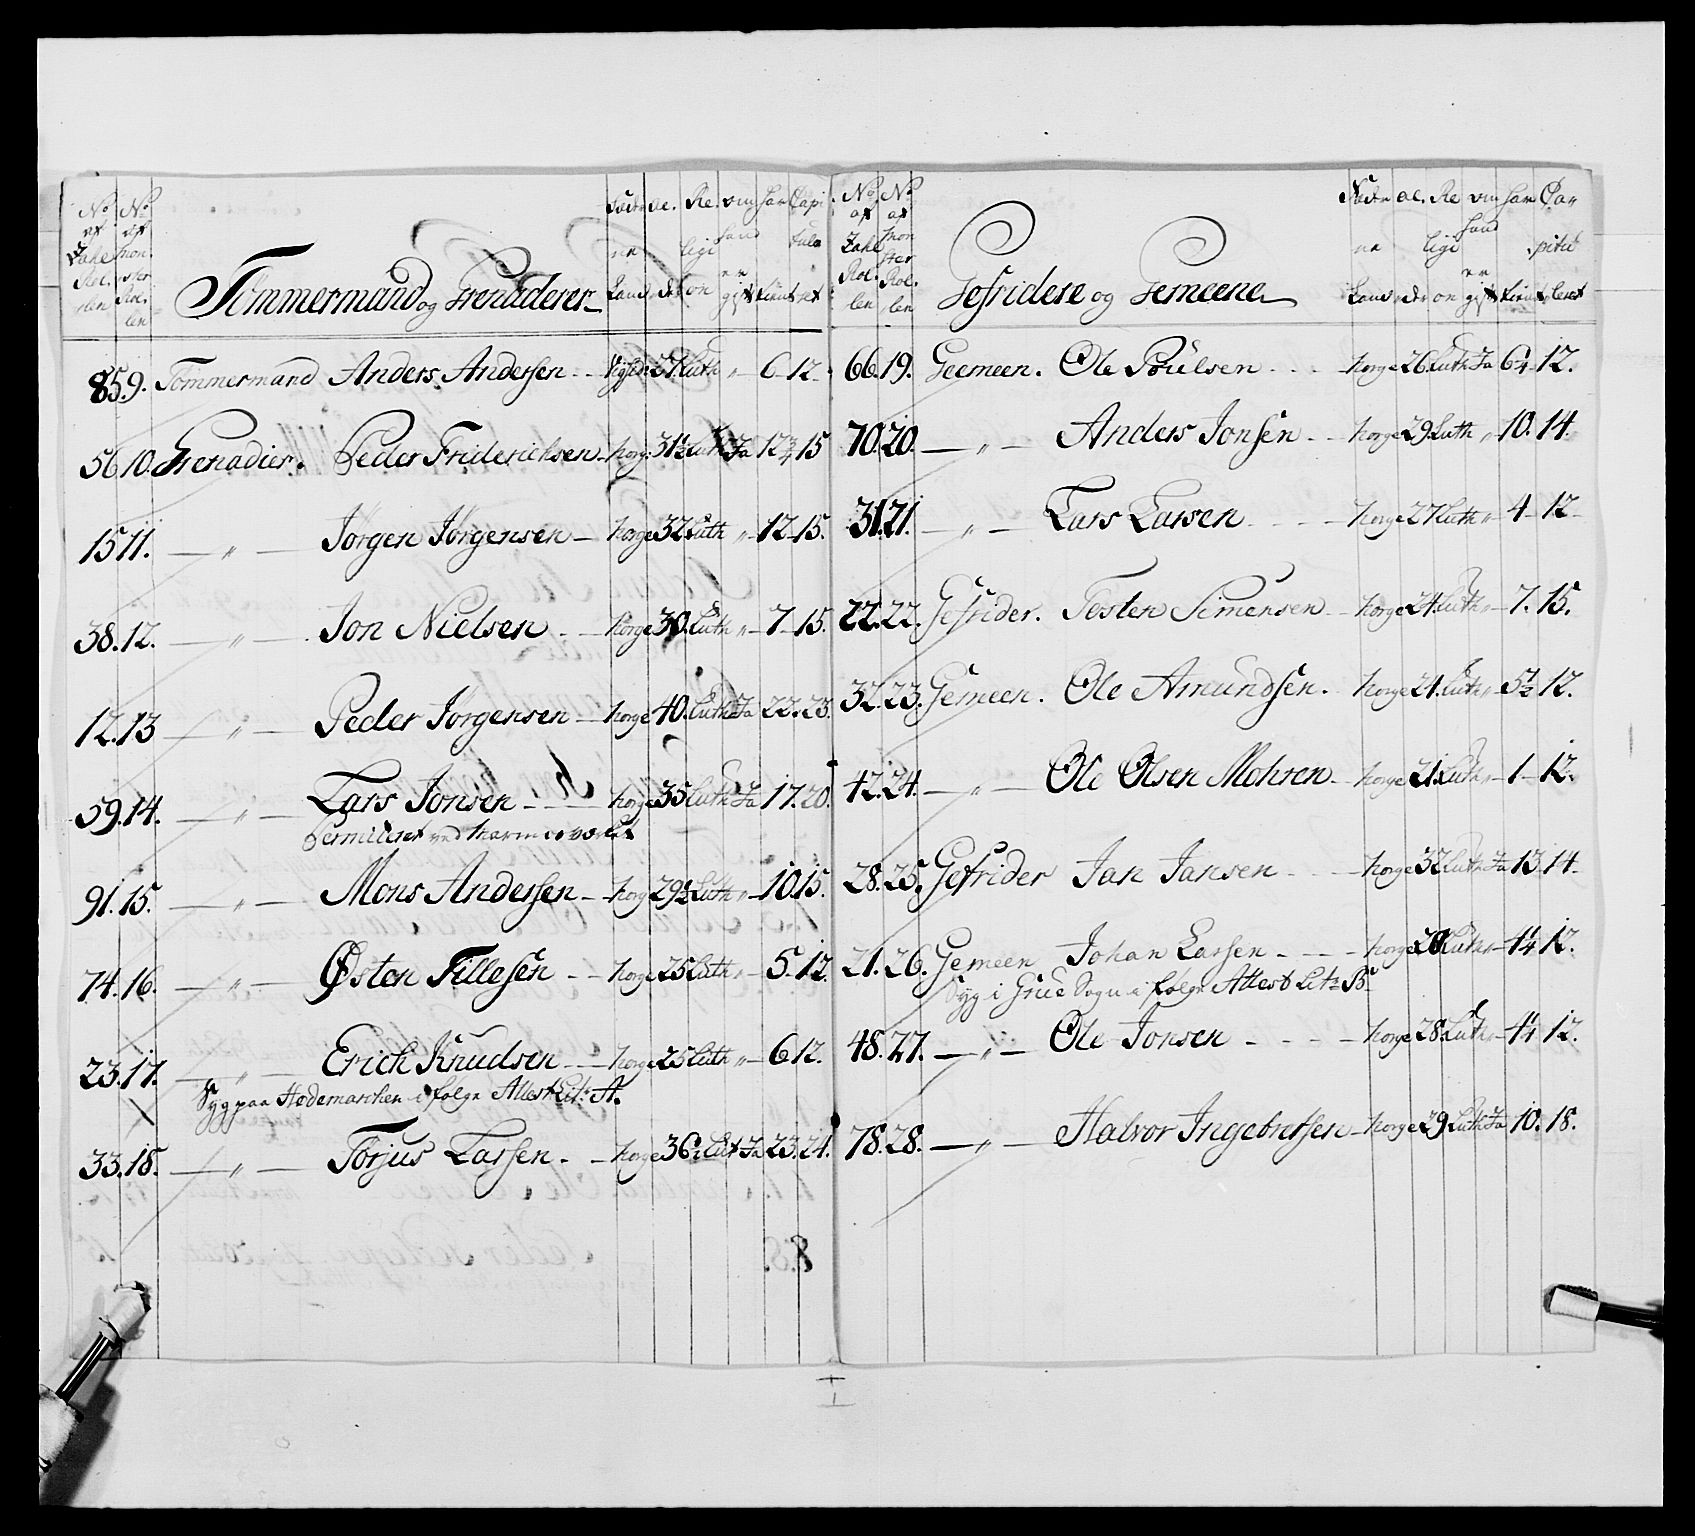 No af Zahl Rol. len
No af Mon ster Rol. len
Tømmermand og Grenaderer
Føde ne Land
al. der
Re. ligi on
om hand er gift
har tient
Capi tule ret
85. 9. Tømmermand Anders Andersen - 27 Luth " 6 - 12.
56 10. Grenadier. Peder Friderichsen - Norg: 31½ Luth Ja 12¾ 15
15 11. " Jørgen Jørgensen - Norge 32 Luth " 12 - 15.
38. 12. " Jon Nielsen - Norge 30. Luth " 7 - 15.
12. 13 " Peder Jørgensen - Norge 40. Luth Ja 22. 23.
59. 14. " Lars Jonsen - Norge 35 Luth Ja 17. 20.
Permiteret ved
91. 15. " Mons Andersen - Norge 29½ Luth " 10 15.
74. 16. " Østen Tillesen - Norge 25 Luth " 5. 12.
23. 17. " Erich Knudsen - Norge 25 Luth " 6 12.
Syg paa Hedemarchen i følge Attest Lit: A.
33. 18. " Torjus Larsen - Norge 36½ Lut Ja 23. 24.
No af Zahl Rol. len
No af Mon ster Rol. len
Gefridere og Gemeene
Føde ne Land
al. der
Re ligi on
om hand er gift
har tient
Ca pitu leret
66. 19. Gemeen. Ole Poulsen - Norge 26. Luth Ja 6¼ 12.
70. 20. " Anders Jonsen - Norge 29. Luth " 10. 14.
31. 21. " Lars Larsen - Norge 27 Luth " 4 - 12
22. 22. Gefrider. Tosten Simensen - Norge 24. Luth " 7. 15.
32. 23. Gemeen. Ole Amundsen. Norge 21. Luth " 5½ 12.
42. 24. " Ole Olsen Mohren - Norge 21. Luth " 1 - 12.
28. 25. Gefrider Jan Jansen - Norge 32 Luth Ja 13 14
21. 26. Gemeen Johan Larsen - Norge Luth " 4¼ 12.
Syg i Grue Sogn i følge Attest Litr B
48. 27. " Ole Jonsen - Norge 28. Luth " 4¼ 12.
78. 28. " Halvor Ingebretsen - Norge 29 Luth Ja 10. 18.